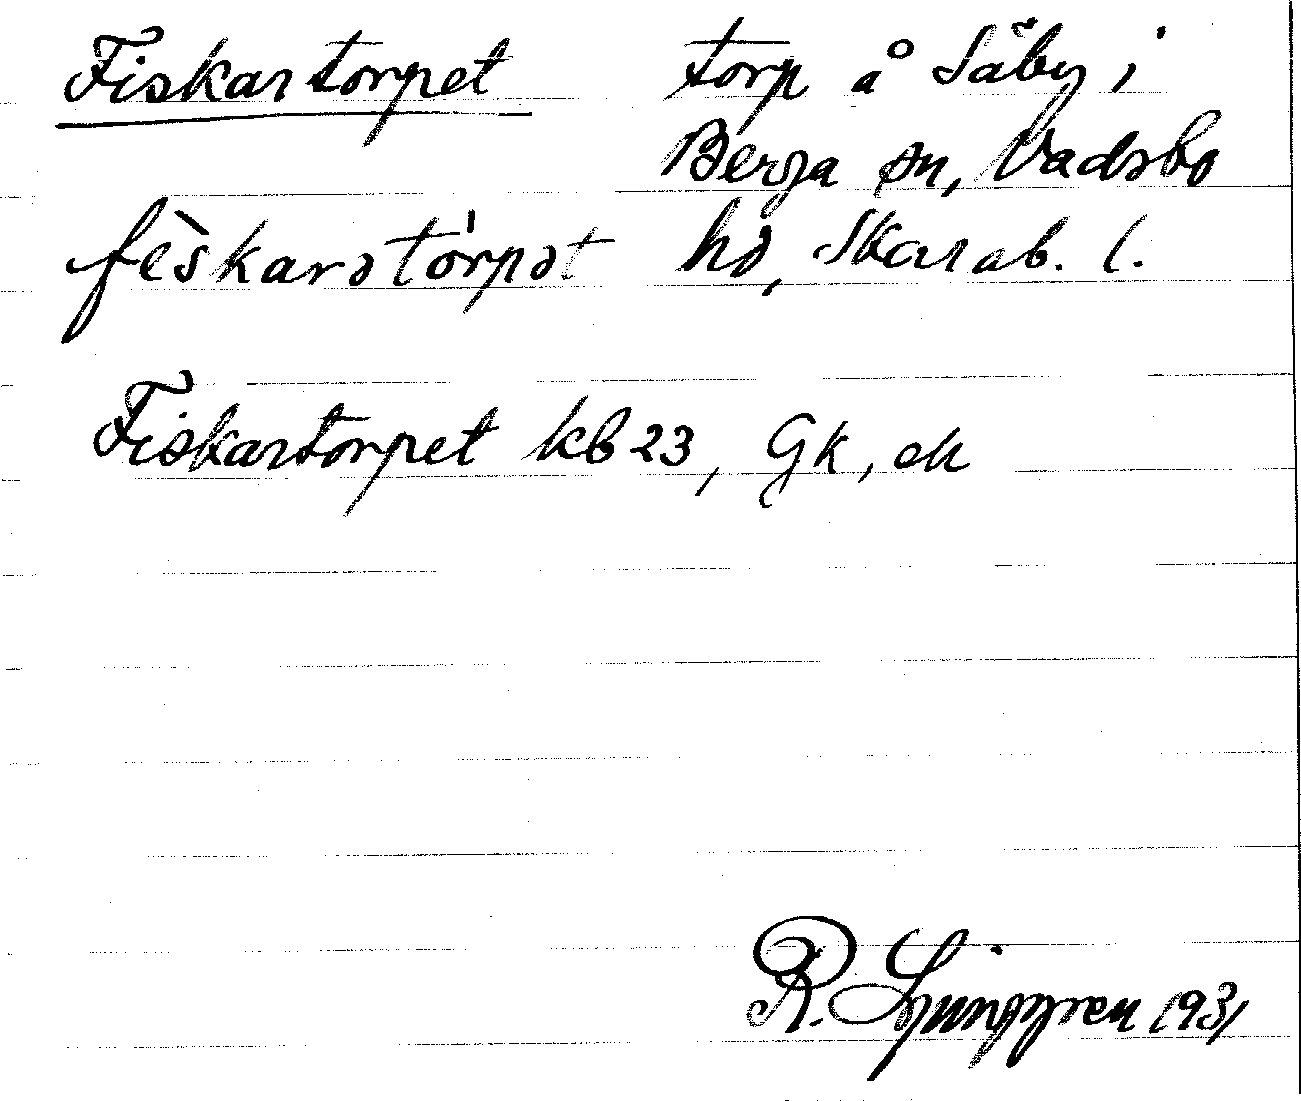 Fiskartorpet torp å Säby i
Berga sn, Vadsbo
fèskarətórpət hd, Skarab. l.
Fiskartorpet kb 23, Gk, ek
R. Ljunggren 1931